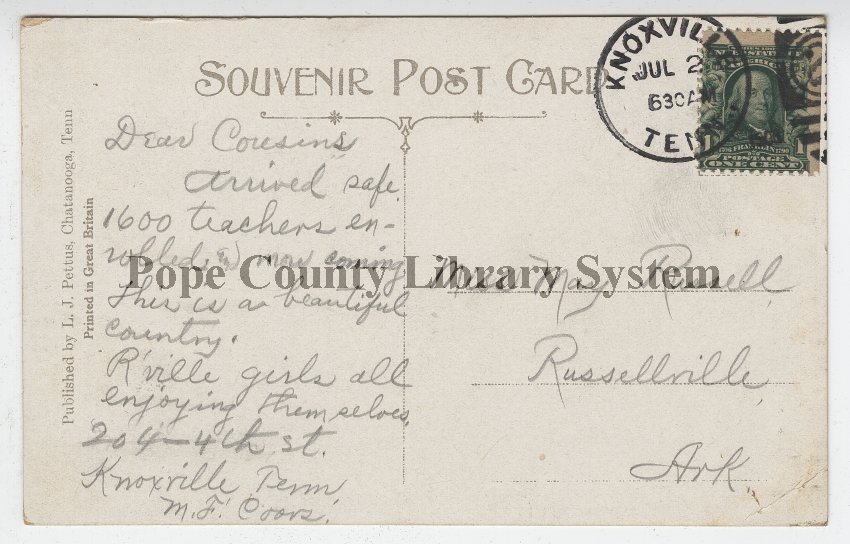 SOUVENIR POST CARD
KNOXVILLE
JUL 2
630 AM
TENN.
UNITED STATES OF AMERICA
1706 FRANKLIN 1790
POSTAGE
1 ONE CENT 1
Dear Cousins
Arrived safe.
1600 teachers en-
rolled, & more coming
This is a beautiful
country.
R'ville girls all
enjoying themselves.
204-4th st.
Knoxville Tenn
M.F. Coors.
Miss May Russell
Russellville
Ark
Pope County Library System
Published by L. J. Pettus, Chatanooga, Tenn
Printed in Great Britain